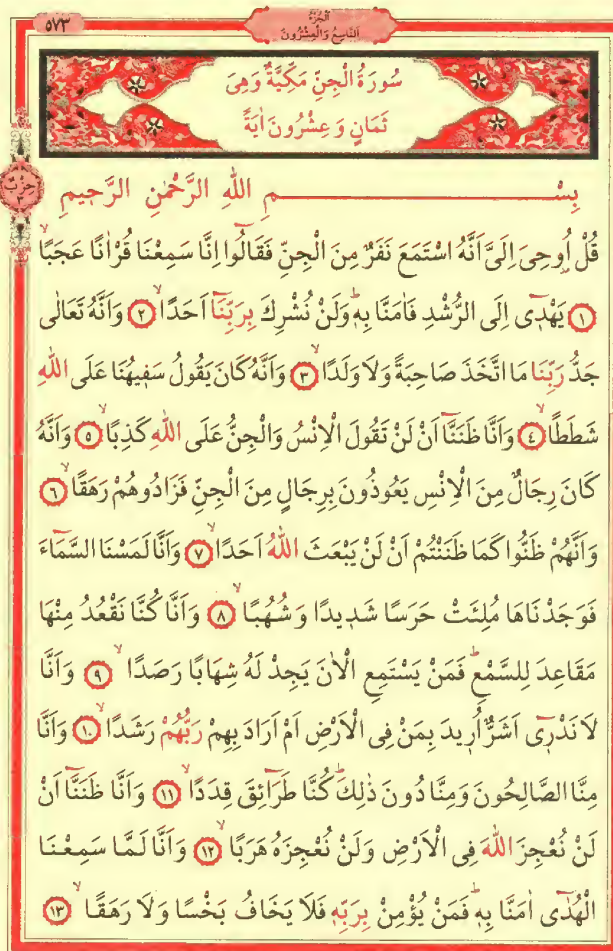 ٥٧٣
اَلْجُزْءُ
اَلتَّاسِعُ وَالْعِشْرُونَ
سُورَةُ الْجِنِّ مَكِّيَّةٌ وَهِيَ
ثَمَانٍ وَعِشْرُونَ اٰيَةً
حِزْبٌ
٣
بِسْمِ اللّٰهِ الرَّحْمٰنِ الرَّحِيمِ
قُلْ اُو۫حِيَ اِلَيَّ اَنَّهُ اسْتَمَعَ نَفَرٌ مِنَ الْجِنِّ فَقَالُٓوا اِنَّا سَمِعْنَا قُرْاٰنًا عَجَبًاۙ
﴿١﴾ يَهْد۪ٓي اِلَى الرُّشْدِ فَاٰمَنَّا بِه۪ۜ وَلَنْ نُشْرِكَ بِرَبِّنَٓا اَحَدًاۙ ﴿٢﴾ وَاَنَّهُ تَعَالٰى
جَدُّ رَبِّنَا مَا اتَّخَذَ صَاحِبَةً وَلَا وَلَدًاۙ ﴿٣﴾ وَاَنَّهُ كَانَ يَقُولُ سَف۪يهُنَا عَلَى اللّٰهِ
شَطَطًاۙ ﴿٤﴾ وَاَنَّا ظَنَنَّٓا اَنْ لَنْ تَقُولَ الْاِنْسُ وَالْجِنُّ عَلَى اللّٰهِ كَذِبًاۙ ﴿٥﴾ وَاَنَّهُ
كَانَ رِجَالٌ مِنَ الْاِنْسِ يَعُوذُونَ بِرِجَالٍ مِنَ الْجِنِّ فَزَادُوهُمْ رَهَقًاۙ ﴿٦﴾
وَاَنَّهُمْ ظَنُّوا كَمَا ظَنَنْتُمْ اَنْ لَنْ يَبْعَثَ اللّٰهُ اَحَدًاۙ ﴿٧﴾ وَاَنَّا لَمَسْنَا السَّمَٓاءَ
فَوَجَدْنَاهَا مُلِئَتْ حَرَسًا شَد۪يدًا وَشُهُبًاۙ ﴿٨﴾ وَاَنَّا كُنَّا نَقْعُدُ مِنْهَا
مَقَاعِدَ لِلسَّمْعِۜ فَمَنْ يَسْتَمِعِ الْاٰنَ يَجِدْ لَهُ شِهَابًا رَصَدًاۙ ﴿٩﴾ وَاَنَّا
لَا نَدْر۪ٓي اَشَرٌّ اُر۪يدَ بِمَنْ فِي الْاَرْضِ اَمْ اَرَادَ بِهِمْ رَبُّهُمْ رَشَدًاۙ ﴿١٠﴾ وَاَنَّا
مِنَّا الصَّالِحُونَ وَمِنَّا دُونَ ذٰلِكَۜ كُنَّا طَرَٓائِقَ قِدَدًاۙ ﴿١١﴾ وَاَنَّا ظَنَنَّٓا اَنْ
لَنْ نُعْجِزَ اللّٰهَ فِي الْاَرْضِ وَلَنْ نُعْجِزَهُ هَرَبًاۙ ﴿١٢﴾ وَاَنَّا لَمَّا سَمِعْنَا
الْهُدٰٓى اٰمَنَّا بِه۪ۜ فَمَنْ يُؤْمِنْ بِرَبِّه۪ فَلَا يَخَافُ بَخْسًا وَلَا رَهَقًاۙ ﴿١٣﴾